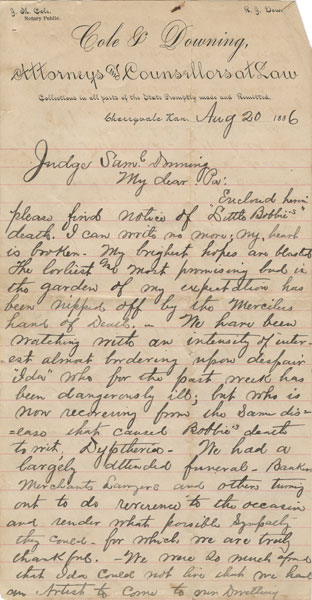 J. M. Cole.
Notary Public.
R. J. Dow
Cole & Downing,
Attorneys and Counsellors at Law
Collections in all parts of the State Promptly made and Remitted.
Cherryvale Kan. Aug 20 1886
Judge Saml Downing
My dear Pa:
Enclosd herein
please find notice of "Little Bobbie's"
death. I can write no more; my heart
is broken. My brightest hopes are blasted
The lovliest and most promising bud in
the garden of my expectation has
been nipped off by the Merciless
hand of Death. — We have been
watching with an intensity of inter-
est almost bordering upon despair
"Ida" who for the past week has
been dangerously ill; but who is
now recovering from the same dis-
=ease that caused Bobbie's death
to wit, Dyptheria. — We had a
largely attended funeral - Bankers
Merchants Lawyers and others turning
out to do reverence to the occasion
and render what possible Sympathy
they could - for which we are truly
thankful. — We were so much afraid
that Ida could not live that we had
an Artist to come to our Dwelling